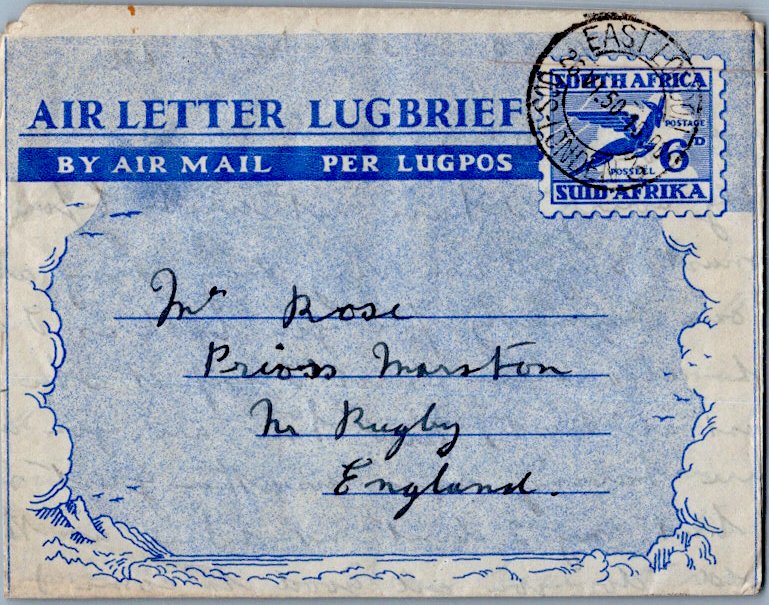 AIR LETTER LUGBRIEF
BY AIR MAIL PER LUGPOS
SOUTH AFRICA
POSTAGE
6D
POSSEËL
SUID-AFRIKA
EAST LONDON
50
Mr Rose
Priors Marston
Nr Rugby
England.